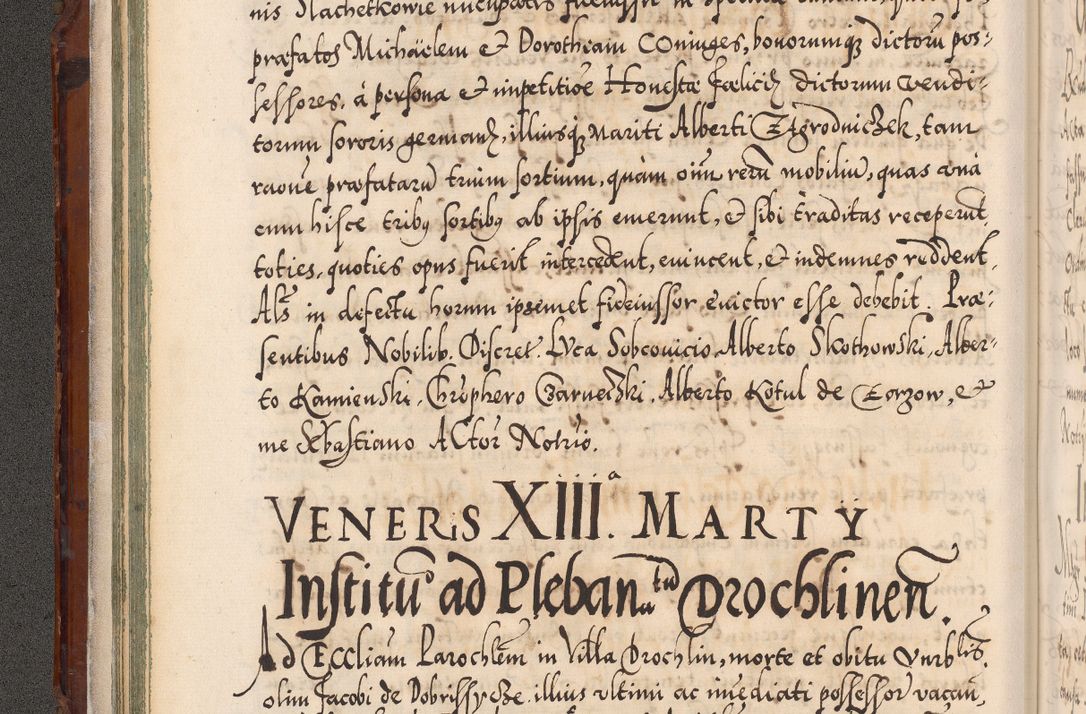 præfatos Michäelem & Dorotheam Coniuges, bonorumq; dictorū pos-
sessores, à persona & impetitiōe Honestæ Fœlicis dictorum vendi-
torum sororis germanæ, illiusq; Mariti Alberti Zagrodniczek, tam
raōne præfatarū trium sortium, quàm oīm rerū mobiliū, quas unà
cum hisce tribꝰ sortibꝰ ab ipsis emerunt, & sibi traditas receperūt,
toties, quoties opus fuerit intercedent, euincent, & indemnes reddent.
Als in defectu horum ipsemet fideiussor euictor esse debebit. Præ-
sentibus Nobilib. Discret. Luca Sobcouicio, Alberto Skothowski, Alber-
to Kamienski, Chrōphero Czarnecki, Alberto Kotul de Tarzow, &
me Sebastiano Actor Notrio.
VENERIS XIIIᵃ. MARTY
Institu° ad Plebanatū Drochlinen̄.
Ad Eccliam̄ Parochlēm in Villa Drochlin, morte et obitu Vnrblis.
olim Jacobi de Dobrissycze illius vltimi ac im̄ediati possessor vacan̄,